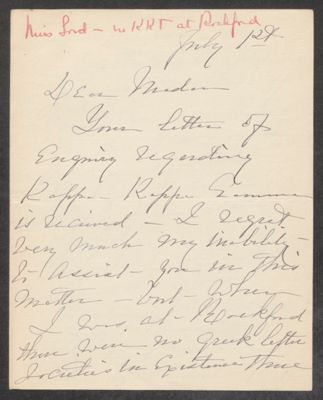 Miss Lord - in KKT at Rockford
July 1st
Dear Madam
Your letter of
Enquiry regarding
Kappa - Kappa Gamma
is recieved - I regret
very much my inability -
to Assist - you in this
Matter - but - when
I was at - Rockford
there were no Greek letter
Societies in Existence there